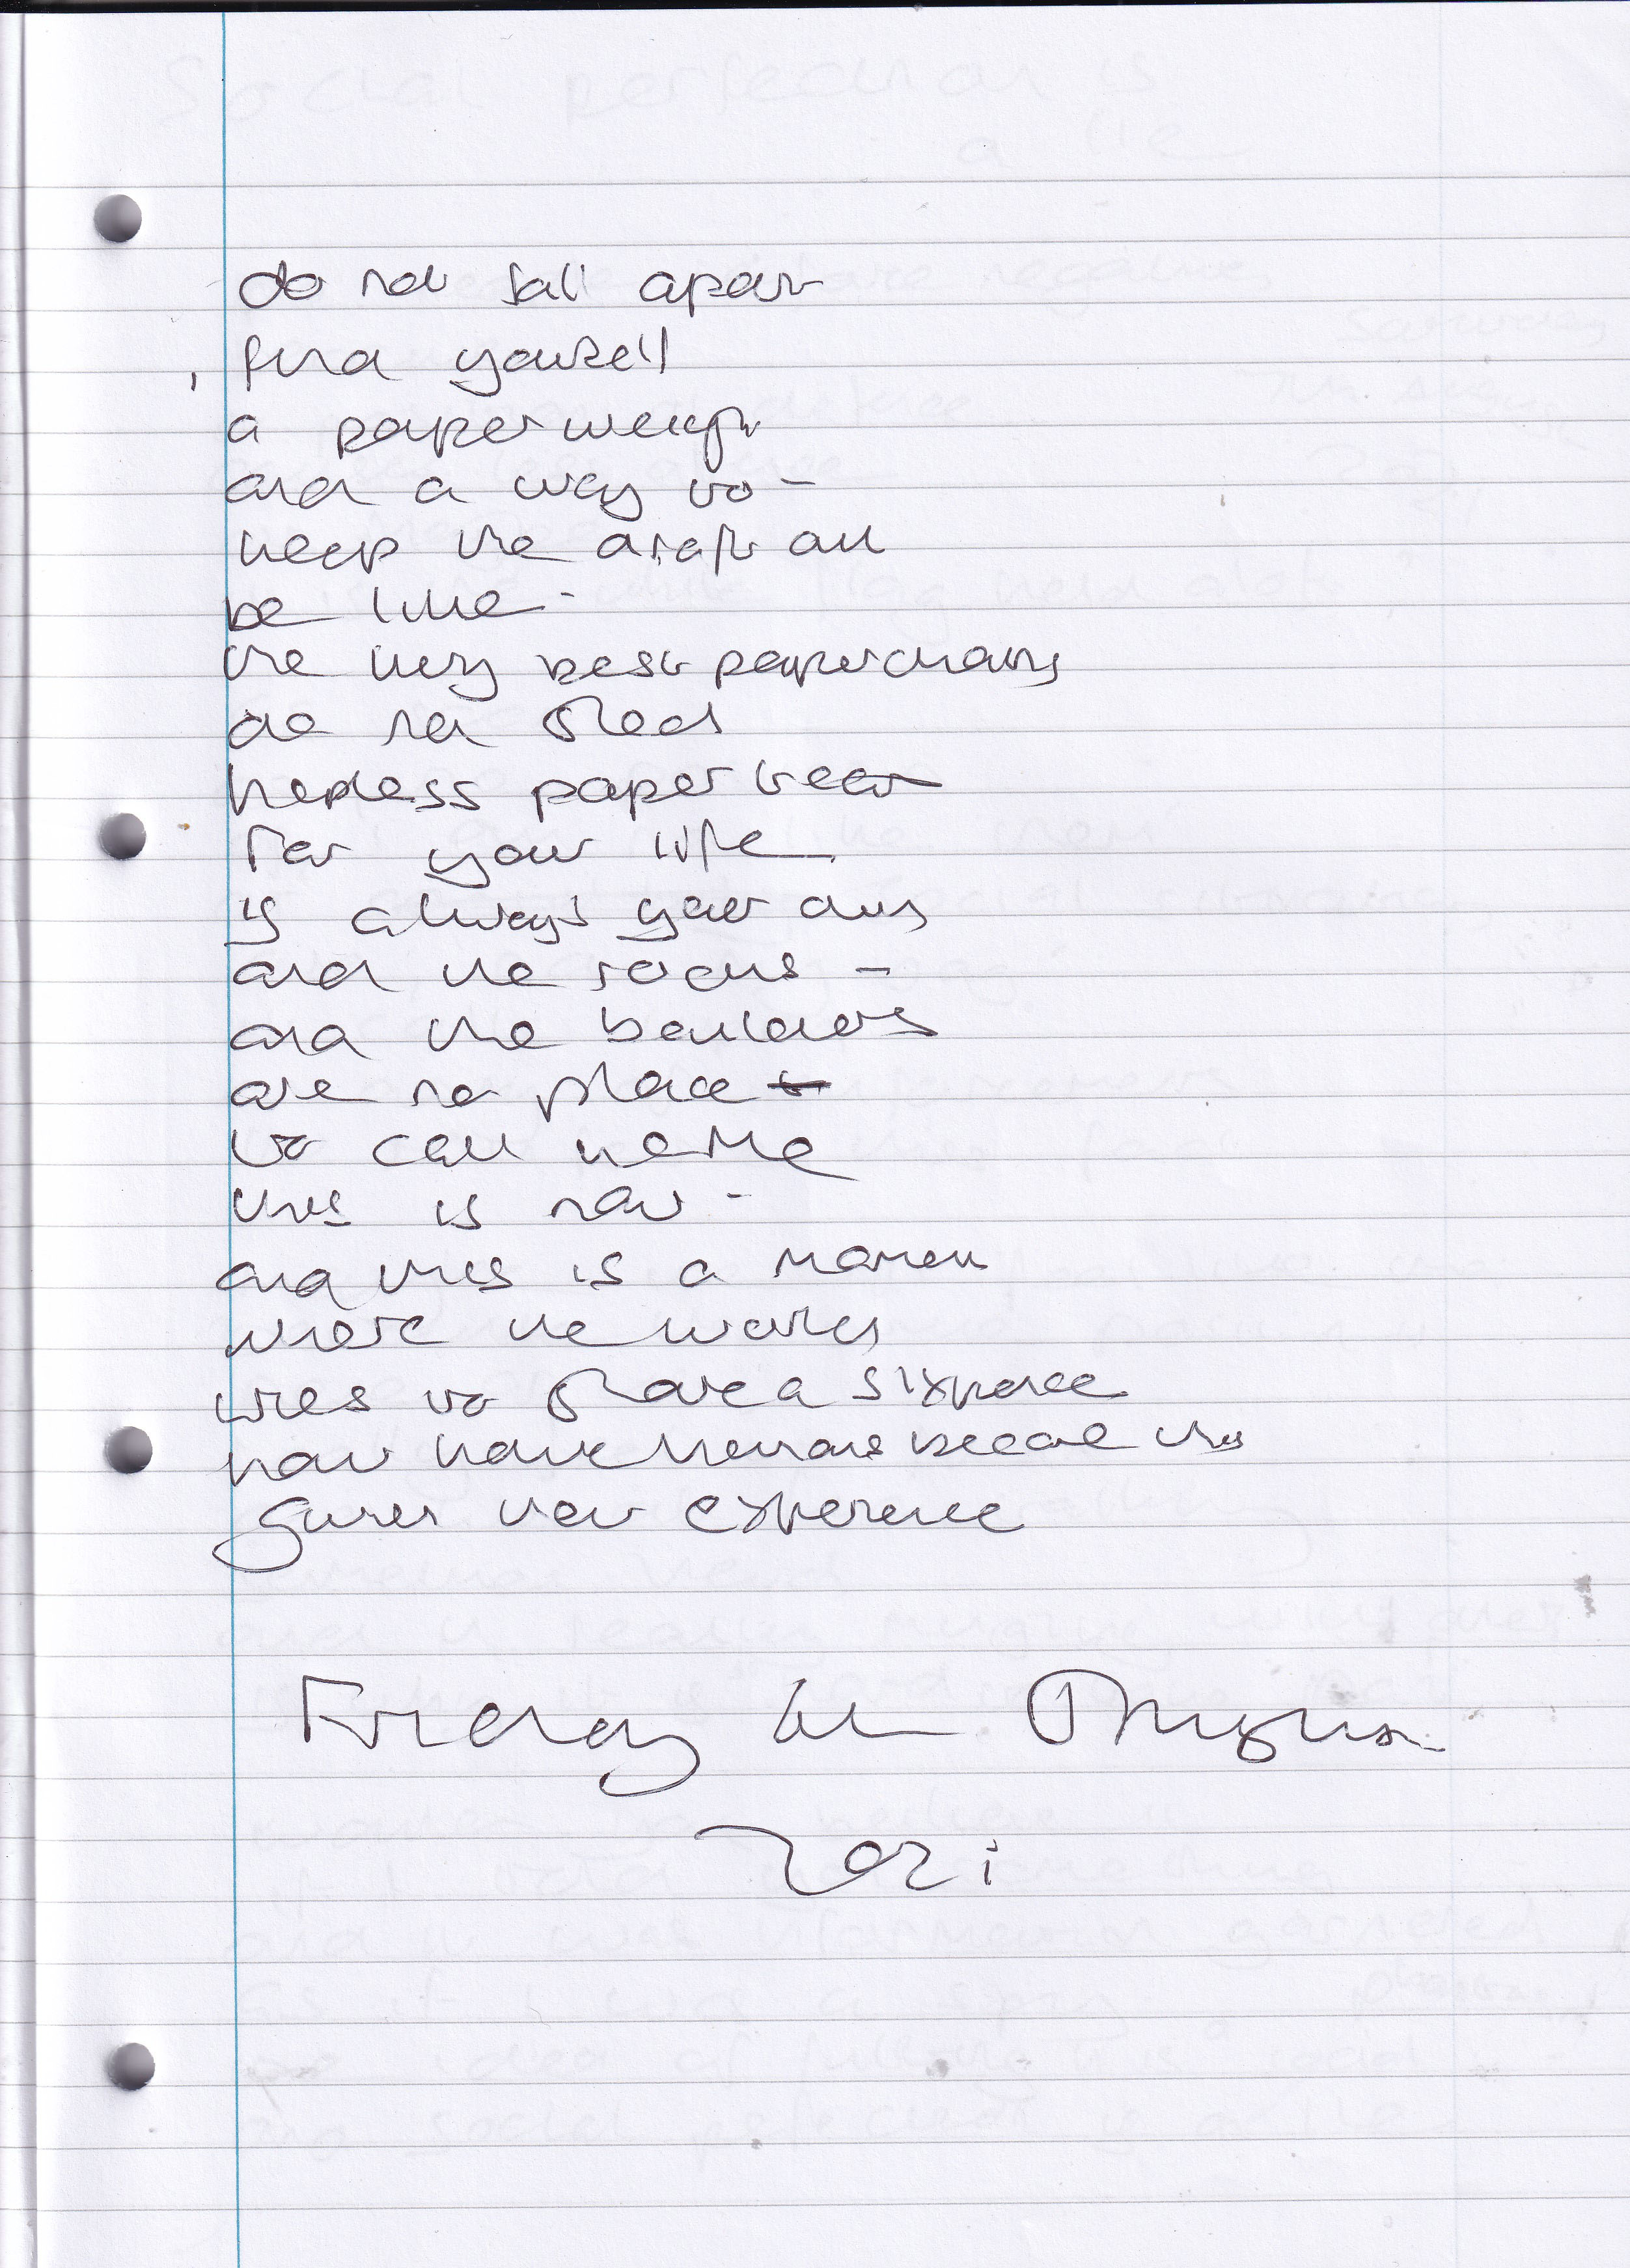 do not fall apart
find yourself
a paper weight
and a way to -
keep the draft out
be like -
the very best paperchains
do not shed
hopeless paper tears
for your life
is always your own
and the rocks -
and the boulders
are no place
to call home
this is now -
and this is a moment
where the world
tries to shave a sixpence
how have humans become this
given their experience
Friday
2021